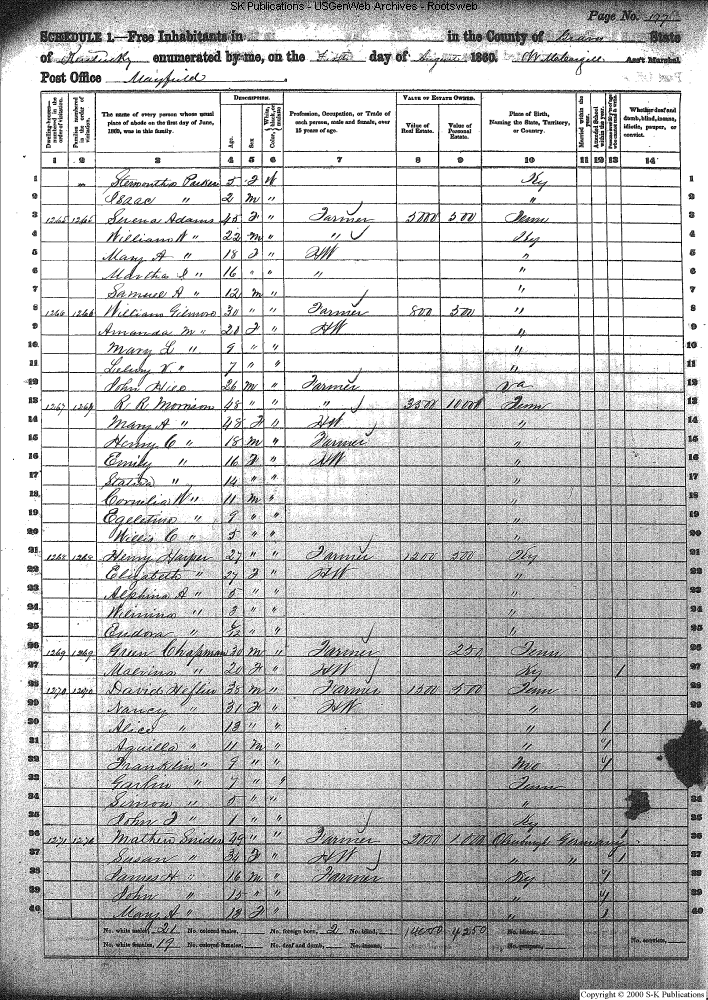 SK Publications - USGenWeb Archives - Rootsweb
Page No.
SCHEDULE 1.—Free Inhabitants in in the County of State
of Kentucky enumerated by me, on the day of August 1860. Ass't Marshal
Post Office Mayfield
Dwelling-houses—numbered in the order of visitation.
Families numbered in the order of visitation.
The name of every person whose usual place of abode on the first day of June, 1860, was in this family.
DESCRIPTION.
Age.
Sex.
Color, White, black, or mulatto
Profession, Occupation, or Trade of each person, male and female, over 15 years of age.
VALUE OF ESTATE OWNED.
Value of Real Estate.
Value of Personal Estate.
Place of Birth, Naming the State, Territory, or Country.
Married within the year.
Attended School within the year.
Whether deaf and dumb, blind, insane, idiotic, pauper, or convict.
1 2 3 4 5 6 7 8 9 10 11 12 13 14
1 Parker 5 F W Ky 1
2 Isaac " 2 m " " 2
3 1265 1265 Serena Adams 45 F " Farmer 5000 500 Tenn 3
4 William W " 22 m " " Ky 4
5 Mary A " 18 F " HW " 5
6 Martha " 16 " " " " 6
7 Samuel A " 12 m " " 7
8 1266 1266 William Gilmore 30 " " Farmer 800 500 " 8
9 Amanda M " 20 F " HW " 9
10 Mary L " 9 " " " 10
11 V " 7 " " " 11
12 John 26 m " Farmer Va 12
13 1267 1267 R R Morrison 48 " " " 3500 10000 Tenn 13
14 Mary A " 48 F " HW " 14
15 Henry C " 18 m " Farmer " 15
16 Emily " 16 F " HW " 16
17 " 14 " " " 17
18 Cornelia W " 11 m " " 18
19 " 9 " " " 19
20 Willis C " 5 " " " 20
21 1268 1268 Henry Harper 27 " " Farmer 1200 500 Ky 21
22 Elizabeth " 27 F " HW " 22
23 Alphina A " 5 " " " 23
24 " 3 " " " 24
25 Eudora " " " " 25
26 1269 1269 Green Chapman 30 m " Farmer 250 Tenn 26
27 Malvina " 20 F " HW Ky 1 27
28 1270 1270 David Heflin 38 m " Farmer 1500 500 Tenn 28
29 Nancy " 31 F " HW " 29
30 Alice " 13 " " " 1 30
31 Aquilla " 11 m " " 1 31
32 Franklin " 9 " " Mo 1 32
33 " 7 " " Tenn 33
34 Simon " 5 " " " 34
35 John F " 1 " " Ky 35
36 1271 1270 Mather Snider 49 " " Farmer 2000 1000 Germany 1 36
37 Susan " 34 F " HW " " 1 37
38 James H " 16 m " Farmer Ky 1 38
39 John " 15 " " " 1 39
40 Mary A " 13 F " " 1 40
No. white males, 21 No. colored males, No. foreign born, 2 No. blind, 4250 No. idiotic,
No. white females, 19 No. colored females, No. deaf and dumb, No. insane, No. paupers, No. convicts,
Copyright © 2000 S-K Publications